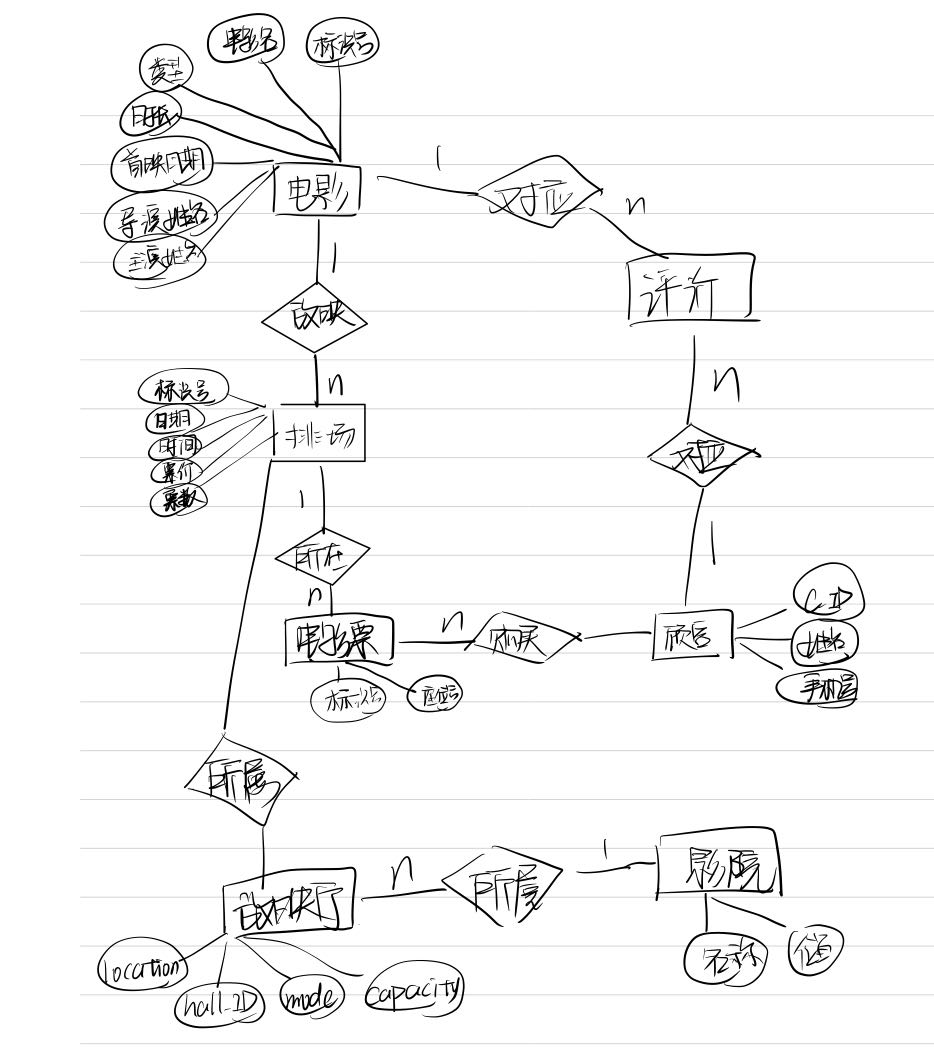 电影名
标识号
类型
时长
首映日期
导演姓名
主演姓名
电影
1
对应
n
评价
1
放映
n
标识号
日期
时间
票价
票数
排场
n
对应
1
1
所在
n
电影票
n
购买
顾客
C_ID
姓名
手机号
标识号
座位号
所属
放映厅
n
所属
1
影院
location
hall_ID
mode
capacity
名称